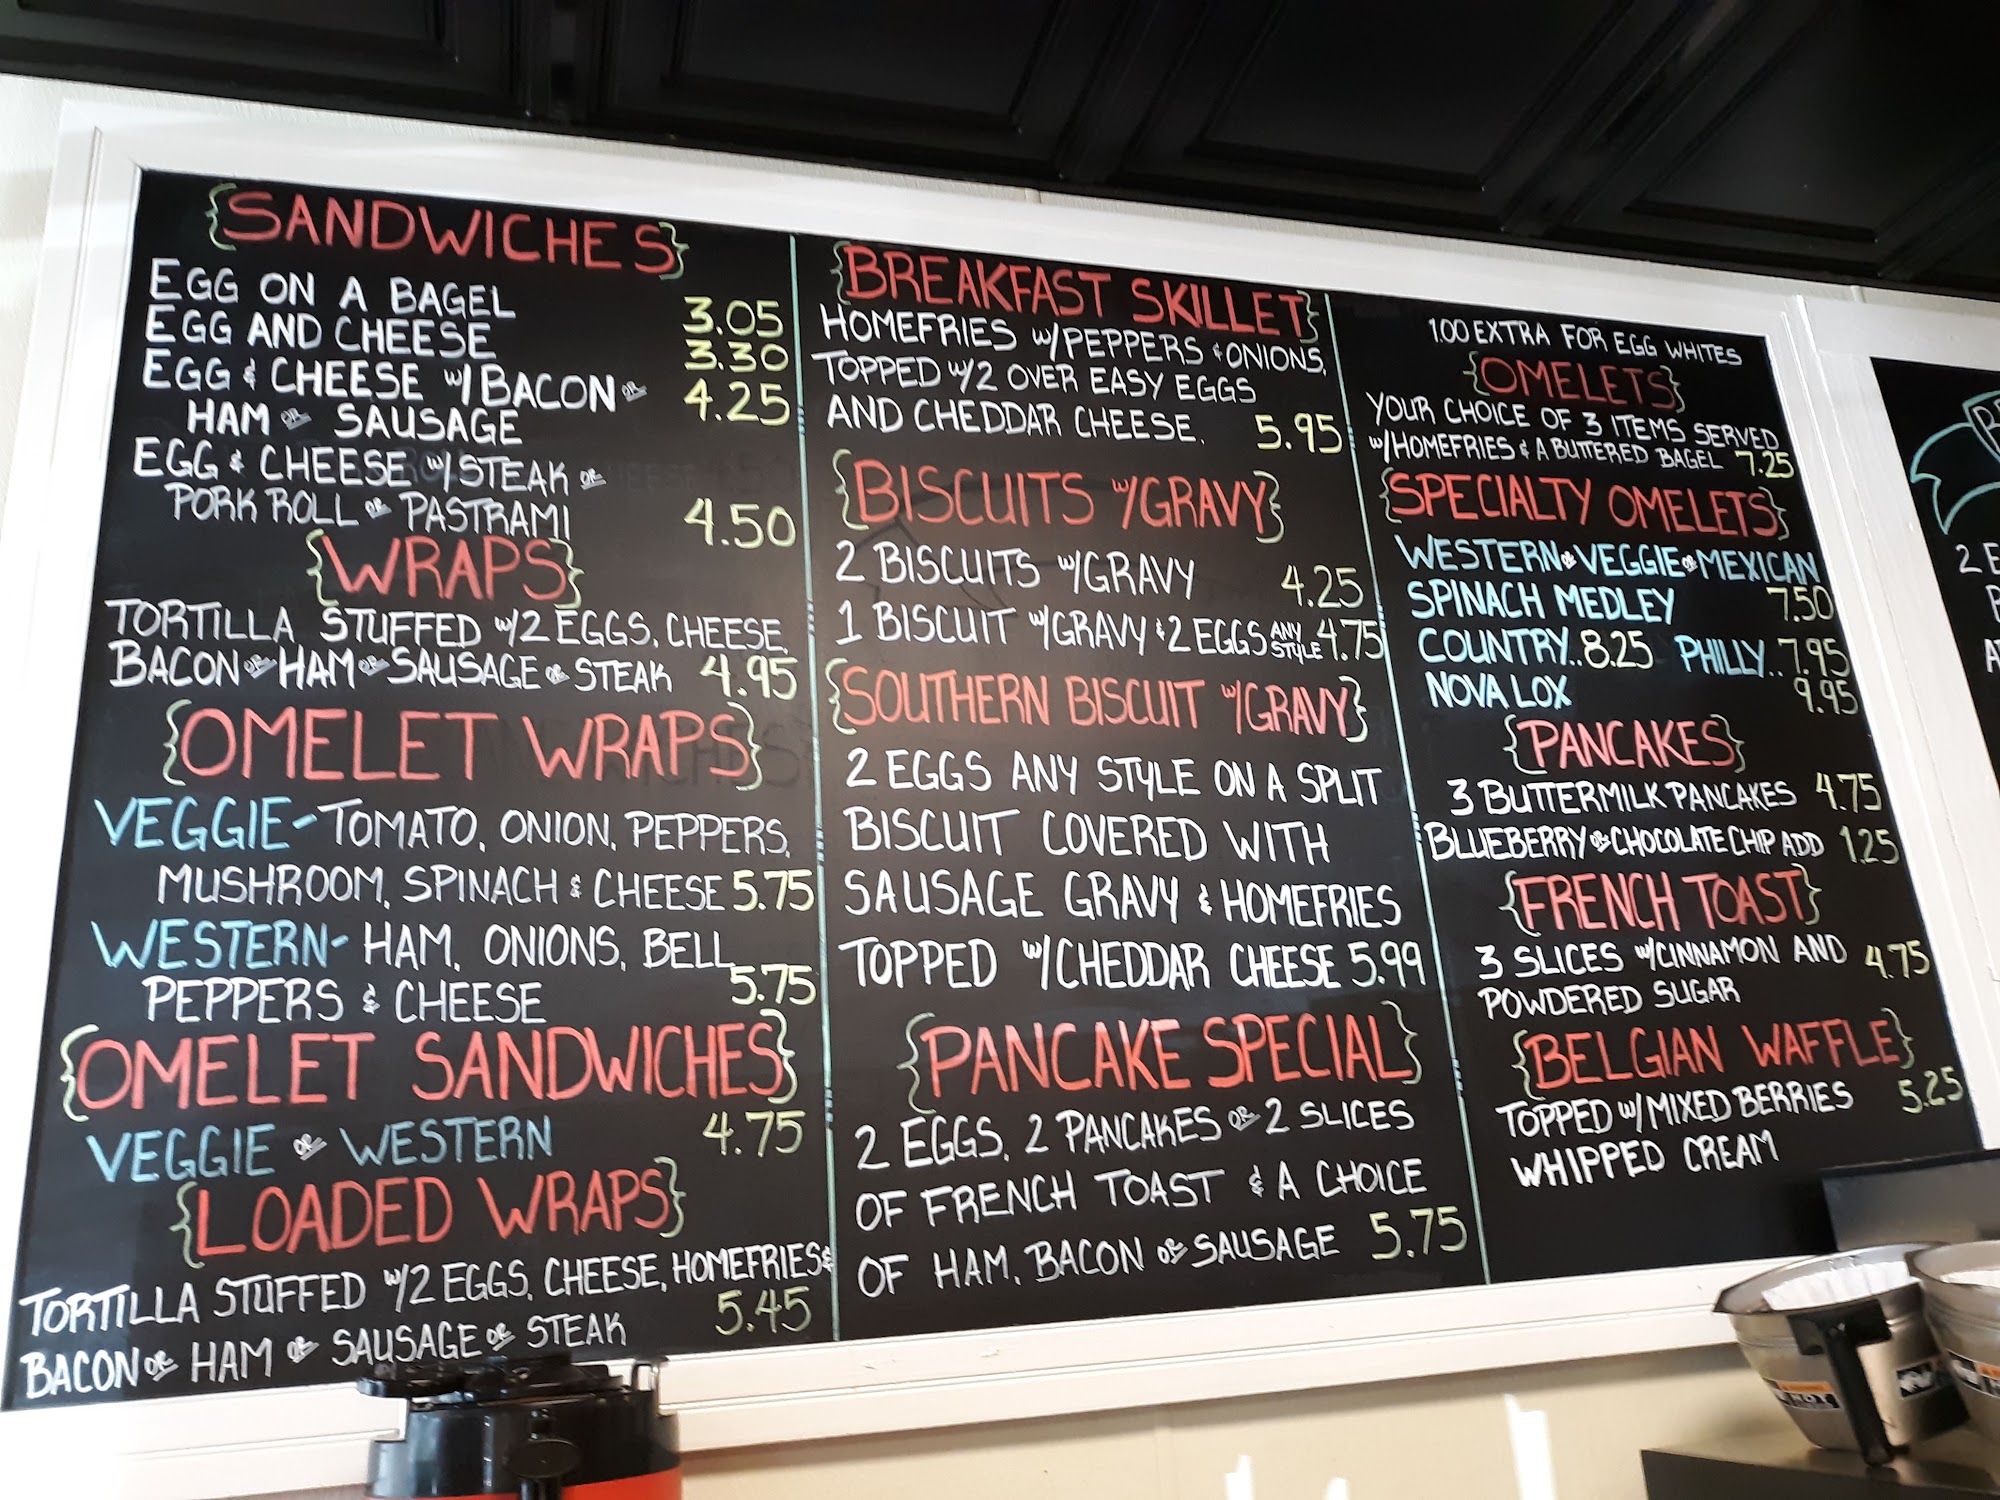 {SANDWICHES}
EGG ON A BAGEL 3.05
EGG AND CHEESE 3.30
EGG & CHEESE w/ BACON OR 4.25
HAM OR SAUSAGE
EGG & CHEESE w/ STEAK OR
PORK ROLL OR PASTRAMI 4.50
{WRAPS}
TORTILLA STUFFED w/2 EGGS, CHEESE,
BACON OR HAM OR SAUSAGE OR STEAK 4.95
{OMELET WRAPS}
VEGGIE- TOMATO, ONION, PEPPERS,
MUSHROOM, SPINACH & CHEESE 5.75
WESTERN- HAM, ONIONS, BELL
PEPPERS & CHEESE 5.75
{OMELET SANDWICHES}
VEGGIE OR WESTERN 4.75
{LOADED WRAPS}
TORTILLA STUFFED w/2 EGGS, CHEESE, HOMEFRIES &
BACON OR HAM OR SAUSAGE OR STEAK 5.45
{BREAKFAST SKILLET}
HOMEFRIES w/PEPPERS & ONIONS,
TOPPED w/2 OVER EASY EGGS
AND CHEDDAR CHEESE. 5.95
{BISCUITS w/GRAVY}
2 BISCUITS w/GRAVY 4.25
1 BISCUIT w/GRAVY & 2 EGGS ANY STYLE 4.75
{SOUTHERN BISCUIT w/GRAVY}
2 EGGS ANY STYLE ON A SPLIT
BISCUIT COVERED WITH
SAUSAGE GRAVY & HOMEFRIES
TOPPED w/CHEDDAR CHEESE 5.99
{PANCAKE SPECIAL}
2 EGGS, 2 PANCAKES OR 2 SLICES
OF FRENCH TOAST & A CHOICE
OF HAM, BACON OR SAUSAGE 5.75
1.00 EXTRA FOR EGG WHITES
{OMELETS}
YOUR CHOICE OF 3 ITEMS SERVED
w/HOMEFRIES & A BUTTERED BAGEL 7.25
{SPECIALTY OMELETS}
WESTERN OR VEGGIE OR MEXICAN
SPINACH MEDLEY 7.50
COUNTRY..8.25 PHILLY..7.95
NOVA LOX 9.95
{PANCAKES}
3 BUTTERMILK PANCAKES 4.75
BLUEBERRY OR CHOCOLATE CHIP ADD 1.25
{FRENCH TOAST}
3 SLICES w/CINNAMON AND 4.75
POWDERED SUGAR
{BELGIAN WAFFLE}
TOPPED w/MIXED BERRIES 5.25
WHIPPED CREAM
2 E